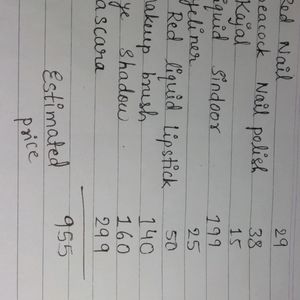 Red Nail 29
eacock Nail polish 38
Kajal 15
iquid Sindoor 199
yeliner 25
Red liquid lipstick 50
akeup brush 140
ye Shadow. 160
ascara 299
Estimated 955
price